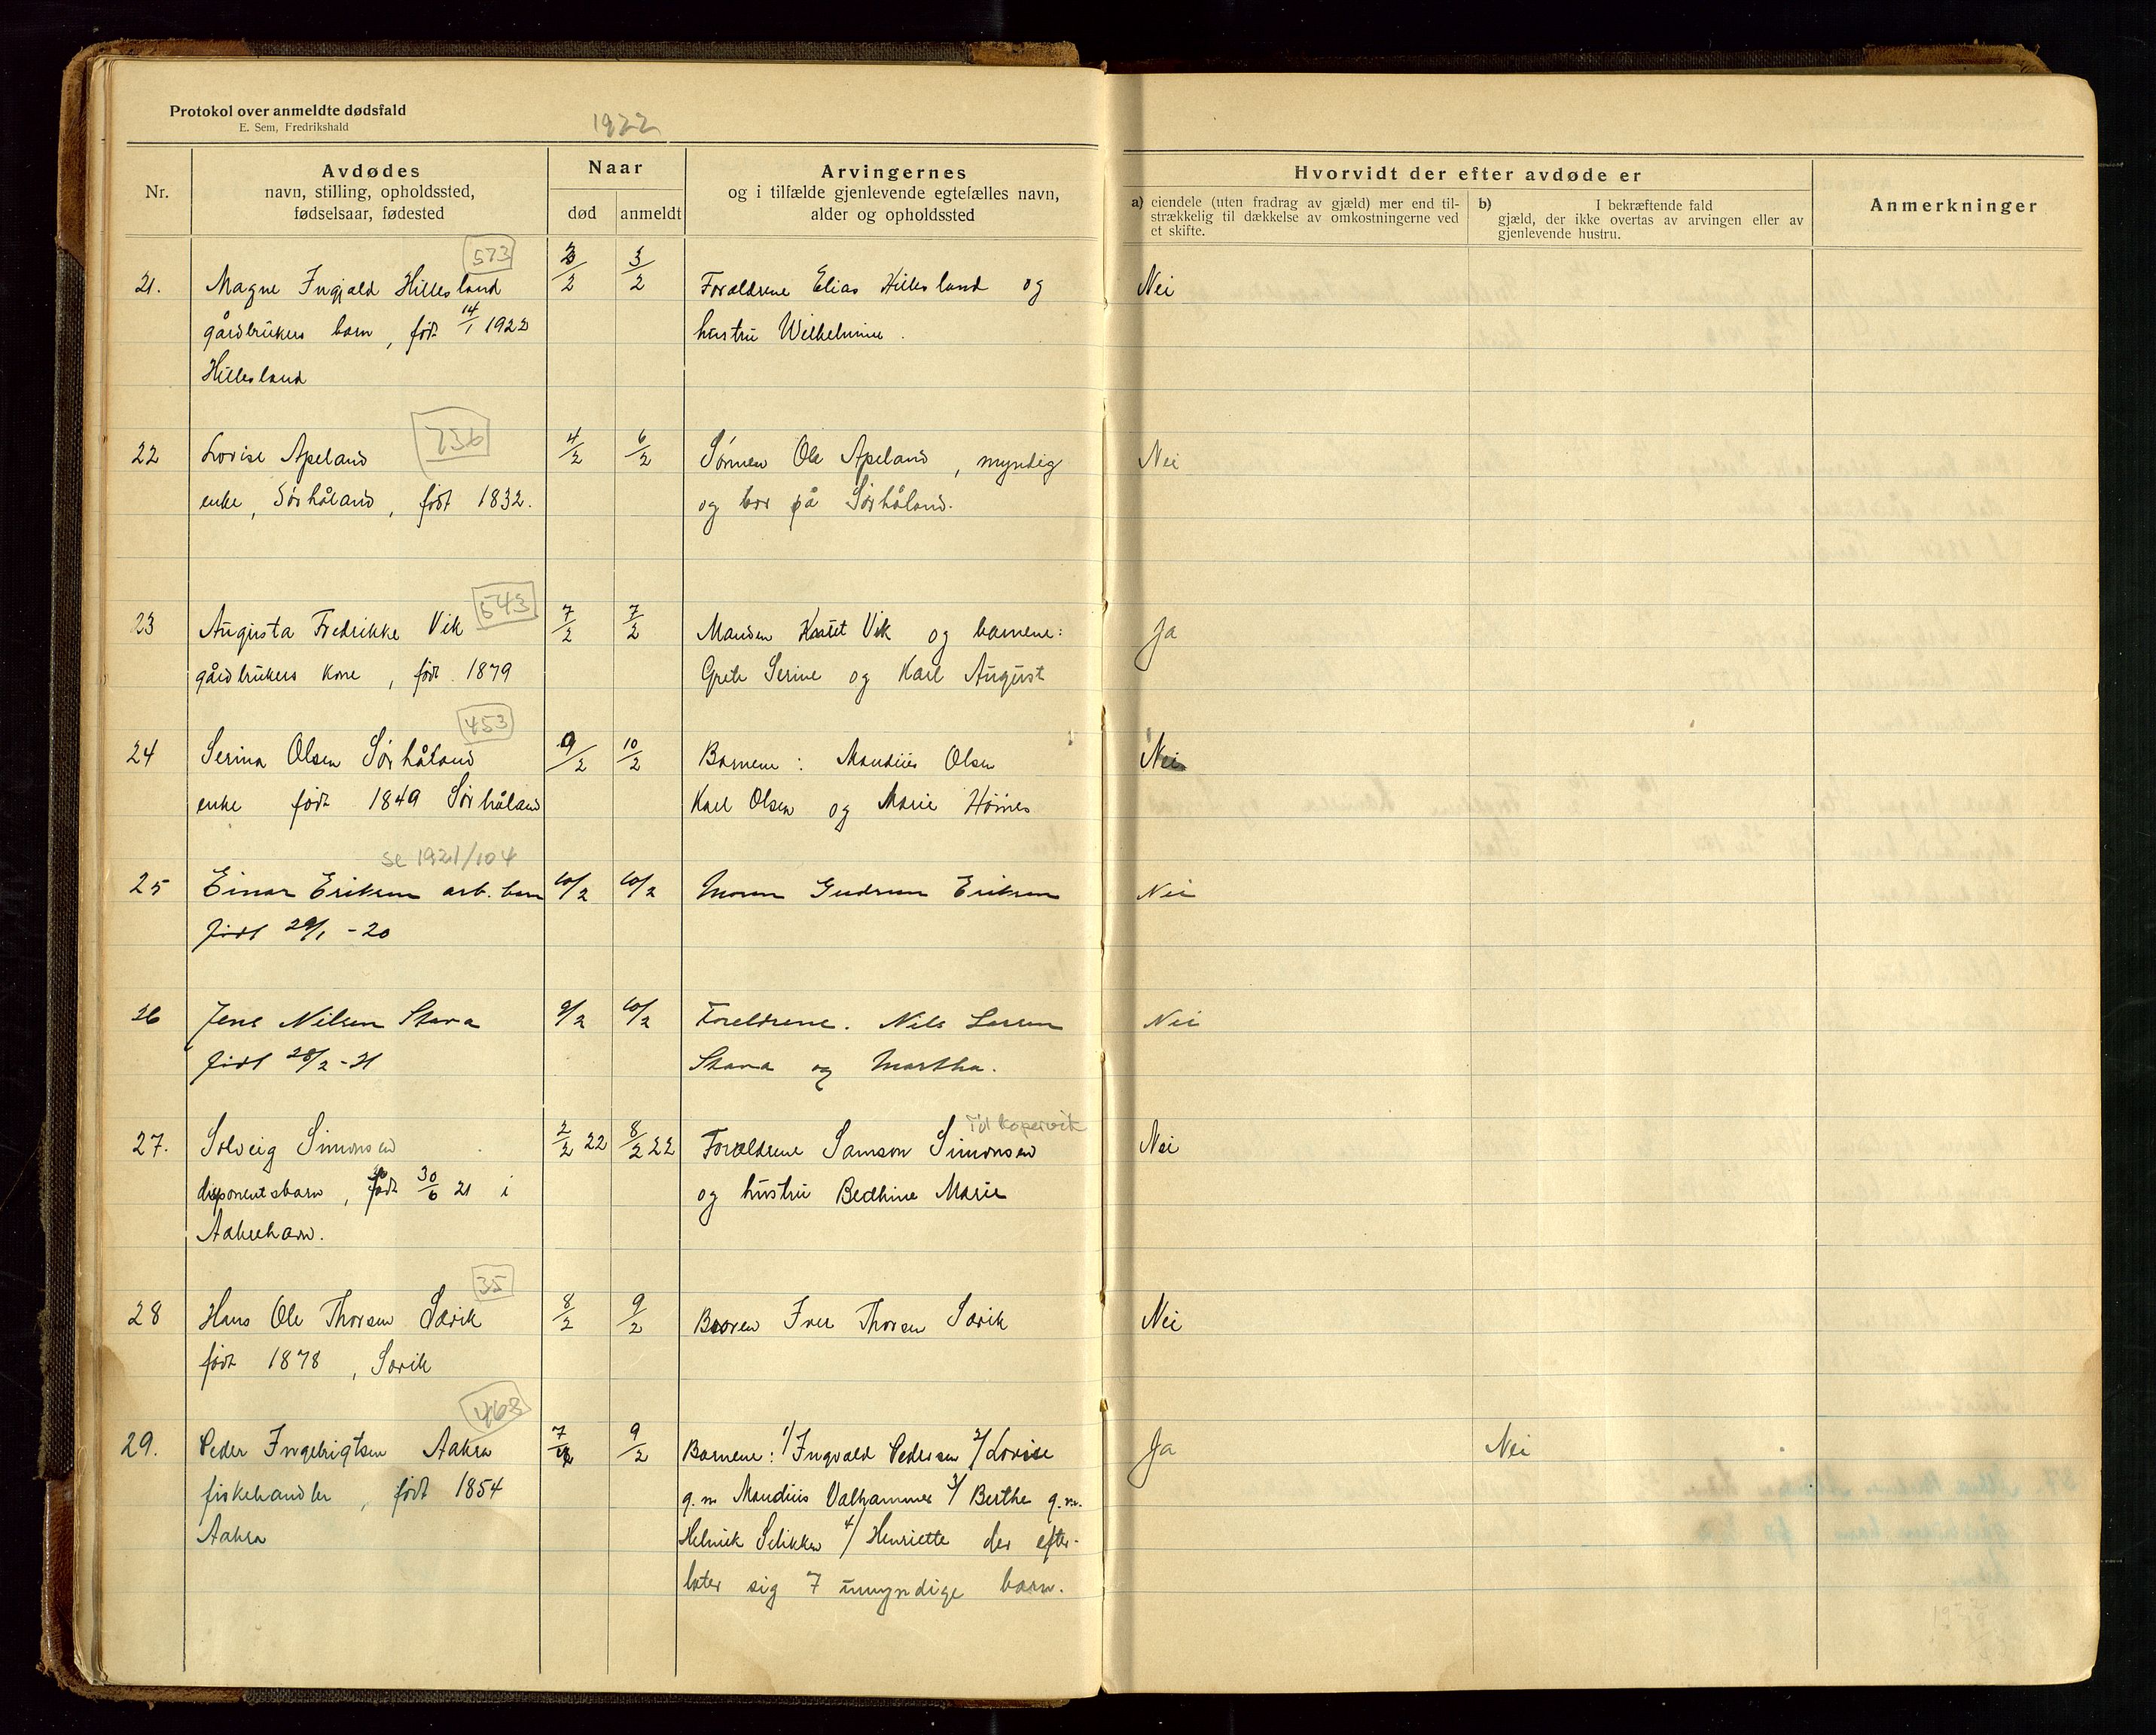 Protokol over anmeldte dødsfald
E. Sem, Fredrikshald
1922
Nr.
Avdødes
navn, stilling, opholdssted,
fødselsaar, fødested
Naar
død
anmeldt
Arvingernes
og i tilfælde gjenlevende egtefælles navn,
alder og opholdssted
Hvorvidt der efter avdøde er
a) eiendele (uten fradrag av gjæld) mer end til-
strækkelig til dækkelse av omkostningerne ved
et skifte.
b) I bekræftende fald
gjæld, der ikke overtas av arvingen eller av
gjenlevende hustru.
Anmerkninger
573
21. Magne Ingjald Hillesland 3/2 3/2 Forældrene Elias Hillesland og Nei
gårdbrukers barn, født 14/1 1922 hustru Wilhelmine.
Hillesland
736
22 Lovise Apeland 4/2 6/2 Sønnen Ole Apeland, myndig Nei
enke, Sørhåland, født 1832. og bor på Sørhåland.
543
23 Augusta Fredrikke Vik 7/2 7/2 Manden Vik og barnene: Ja
gårdbrukers kone, født 1879 Grete Serine og Karl August
453
24 Serina Olsen Sørhåland 9/2 10/2 Barnene: Mandius Olsen Nei
enke født 1849 Sørhåland Karl Olsen og Marie Høines
se 1921/104
25 Einar Eriksen arb. barn 10/2 10/2 Moren Gudrun Eriksen Nei
født 29/1 - 20
26 Jens Nilsen Stava 9/2 10/2 Foreldrene. Nils Larsen Nei
født 28/2 - 21 Stava og Martha.
Til Kopervik
27. Solveig Simonsen 2/2 22 8/2 22 Forældrene Samson Simonsen Nei
disponentsbarn, født 30/6 21 i og hustru Bedhine Marie
Aakrehavn.
35
28 Hans Ole Thorsen Sævik 8/2 9/2 Broren Iver Thorsen Sævik Nei
født 1878, Sævik
463
29. Peder Ingebrigtsen Aakra 7/2 9/2 Barnene: 1/ Ingvald Pedersen 2/ Lovise Ja Nei
fiskehandler, født 1854 g.m. Mandius Valhammer 3/ Berthe g.m.
Aakra Helmik Selikken 4/ Henriette der efter-
later sig 7 umyndige barn.